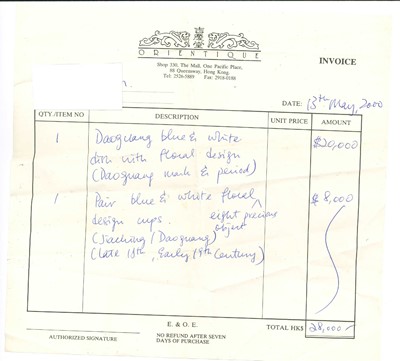 喜慶堂
ORIENTIQUE
Shop 330, The Mall, One Pacific Place,
88 Queensway, Hong Kong.
Tel: 2526-5889 Fax: 2918-0180
INVOICE
DATE: 13th May, 2000
QTY./ITEM NO DESCRIPTION UNIT PRICE AMOUNT
1 Daoguang blue & white $20,000
dish with floral design
(Daoguang mark & period)
1 Pair blue & white floral $8,000
design cups. eight precious
object
(Jiaching / Daoguang)
(Late 18th, Early 19th Century)
E. & O. E. TOTAL HK$ 28,000
AUTHORIZED SIGNATURE NO REFUND AFTER SEVEN
DAYS OF PURCHASE